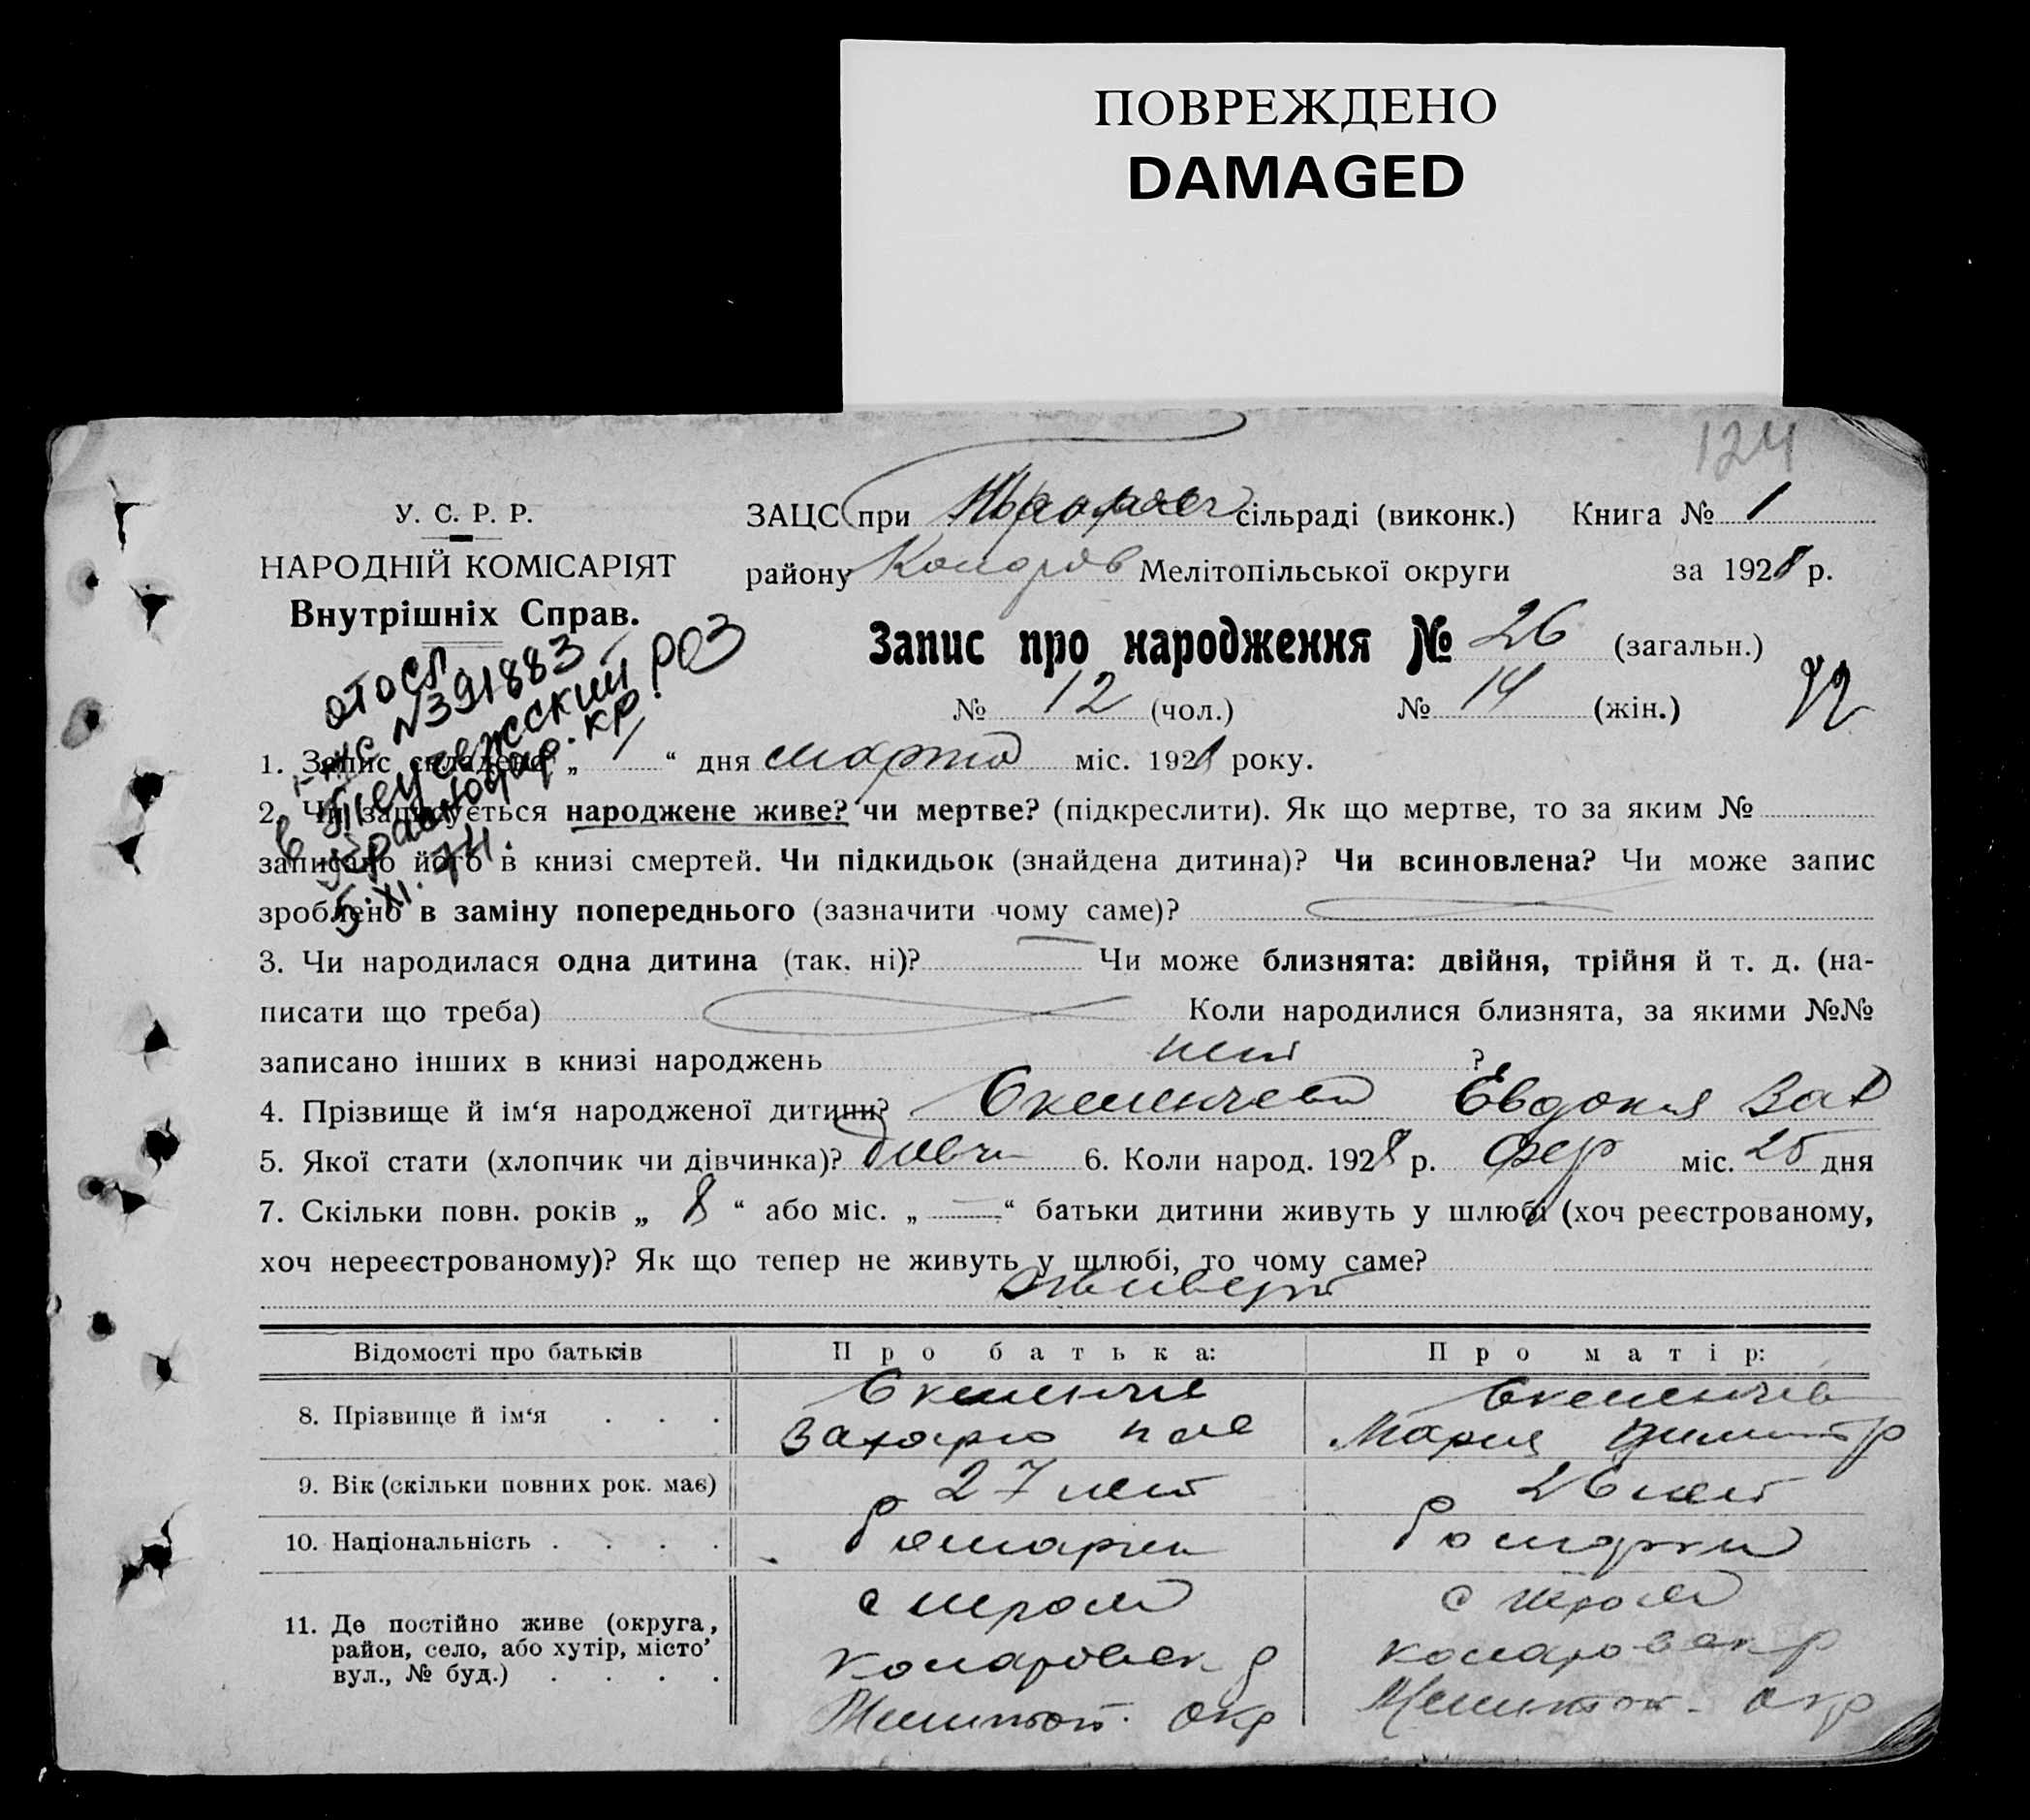 ПОВРЕЖДЕНО
DAMAGED
124
У. С. Р. Р.
НАРОДНІЙ КОМІСАРІЯТ
Внутрішніх Справ.
ЗАЦС при сільраді (виконк.) Книга № 1
району Мелітопільської округи за 1928 р.
Запис про народження № 26 (загальн.)
№ 12 (чол.) № 14 (жін.)
N391883
РОЗ
5.XI.74.
1. Запис складено „ 1 “ дня марта міс. 1928 року.
2. Чи записується народжене живе? чи мертве? (підкреслити). Як що мертве, то за яким №
записано його в книзі смертей. Чи підкидьок (знайдена дитина)? Чи всиновлена? Чи може запис
зроблено в заміну попереднього (зазначити чому саме)?
3. Чи народилася одна дитина (так. ні)? Чи може близнята: двійня, трійня й т. д. (на-
писати що треба) Коли народилися близнята, за якими №№
записано інших в книзі народжень нет ?
4. Прізвище й ім‘я народженої дитини? Евдокия Зах
5. Якої стати (хлопчик чи дівчинка)? 6. Коли народ. 1928 р. фер міс. 25 дня
7. Скільки повн. років „ 8 “ або міс. „ — “ батьки дитини живуть у шлюбі (хоч реєстрованому,
хоч нереєстрованому)? Як що тепер не живуть у шлюбі, то чому саме?
живут
Відомості про батьків Про батька: Про матір:
8. Прізвище й ім‘я . . .
Захарио
Мария Димитр
9. Вік (скільки повних рок. має) 27 лет 26 лет
10. Національність . . . .
11. Де постійно живе (округа,
район, село, або хутір, місто’
вул., № буд.) . . . .
Мелитоп. окр Мелитоп. окр